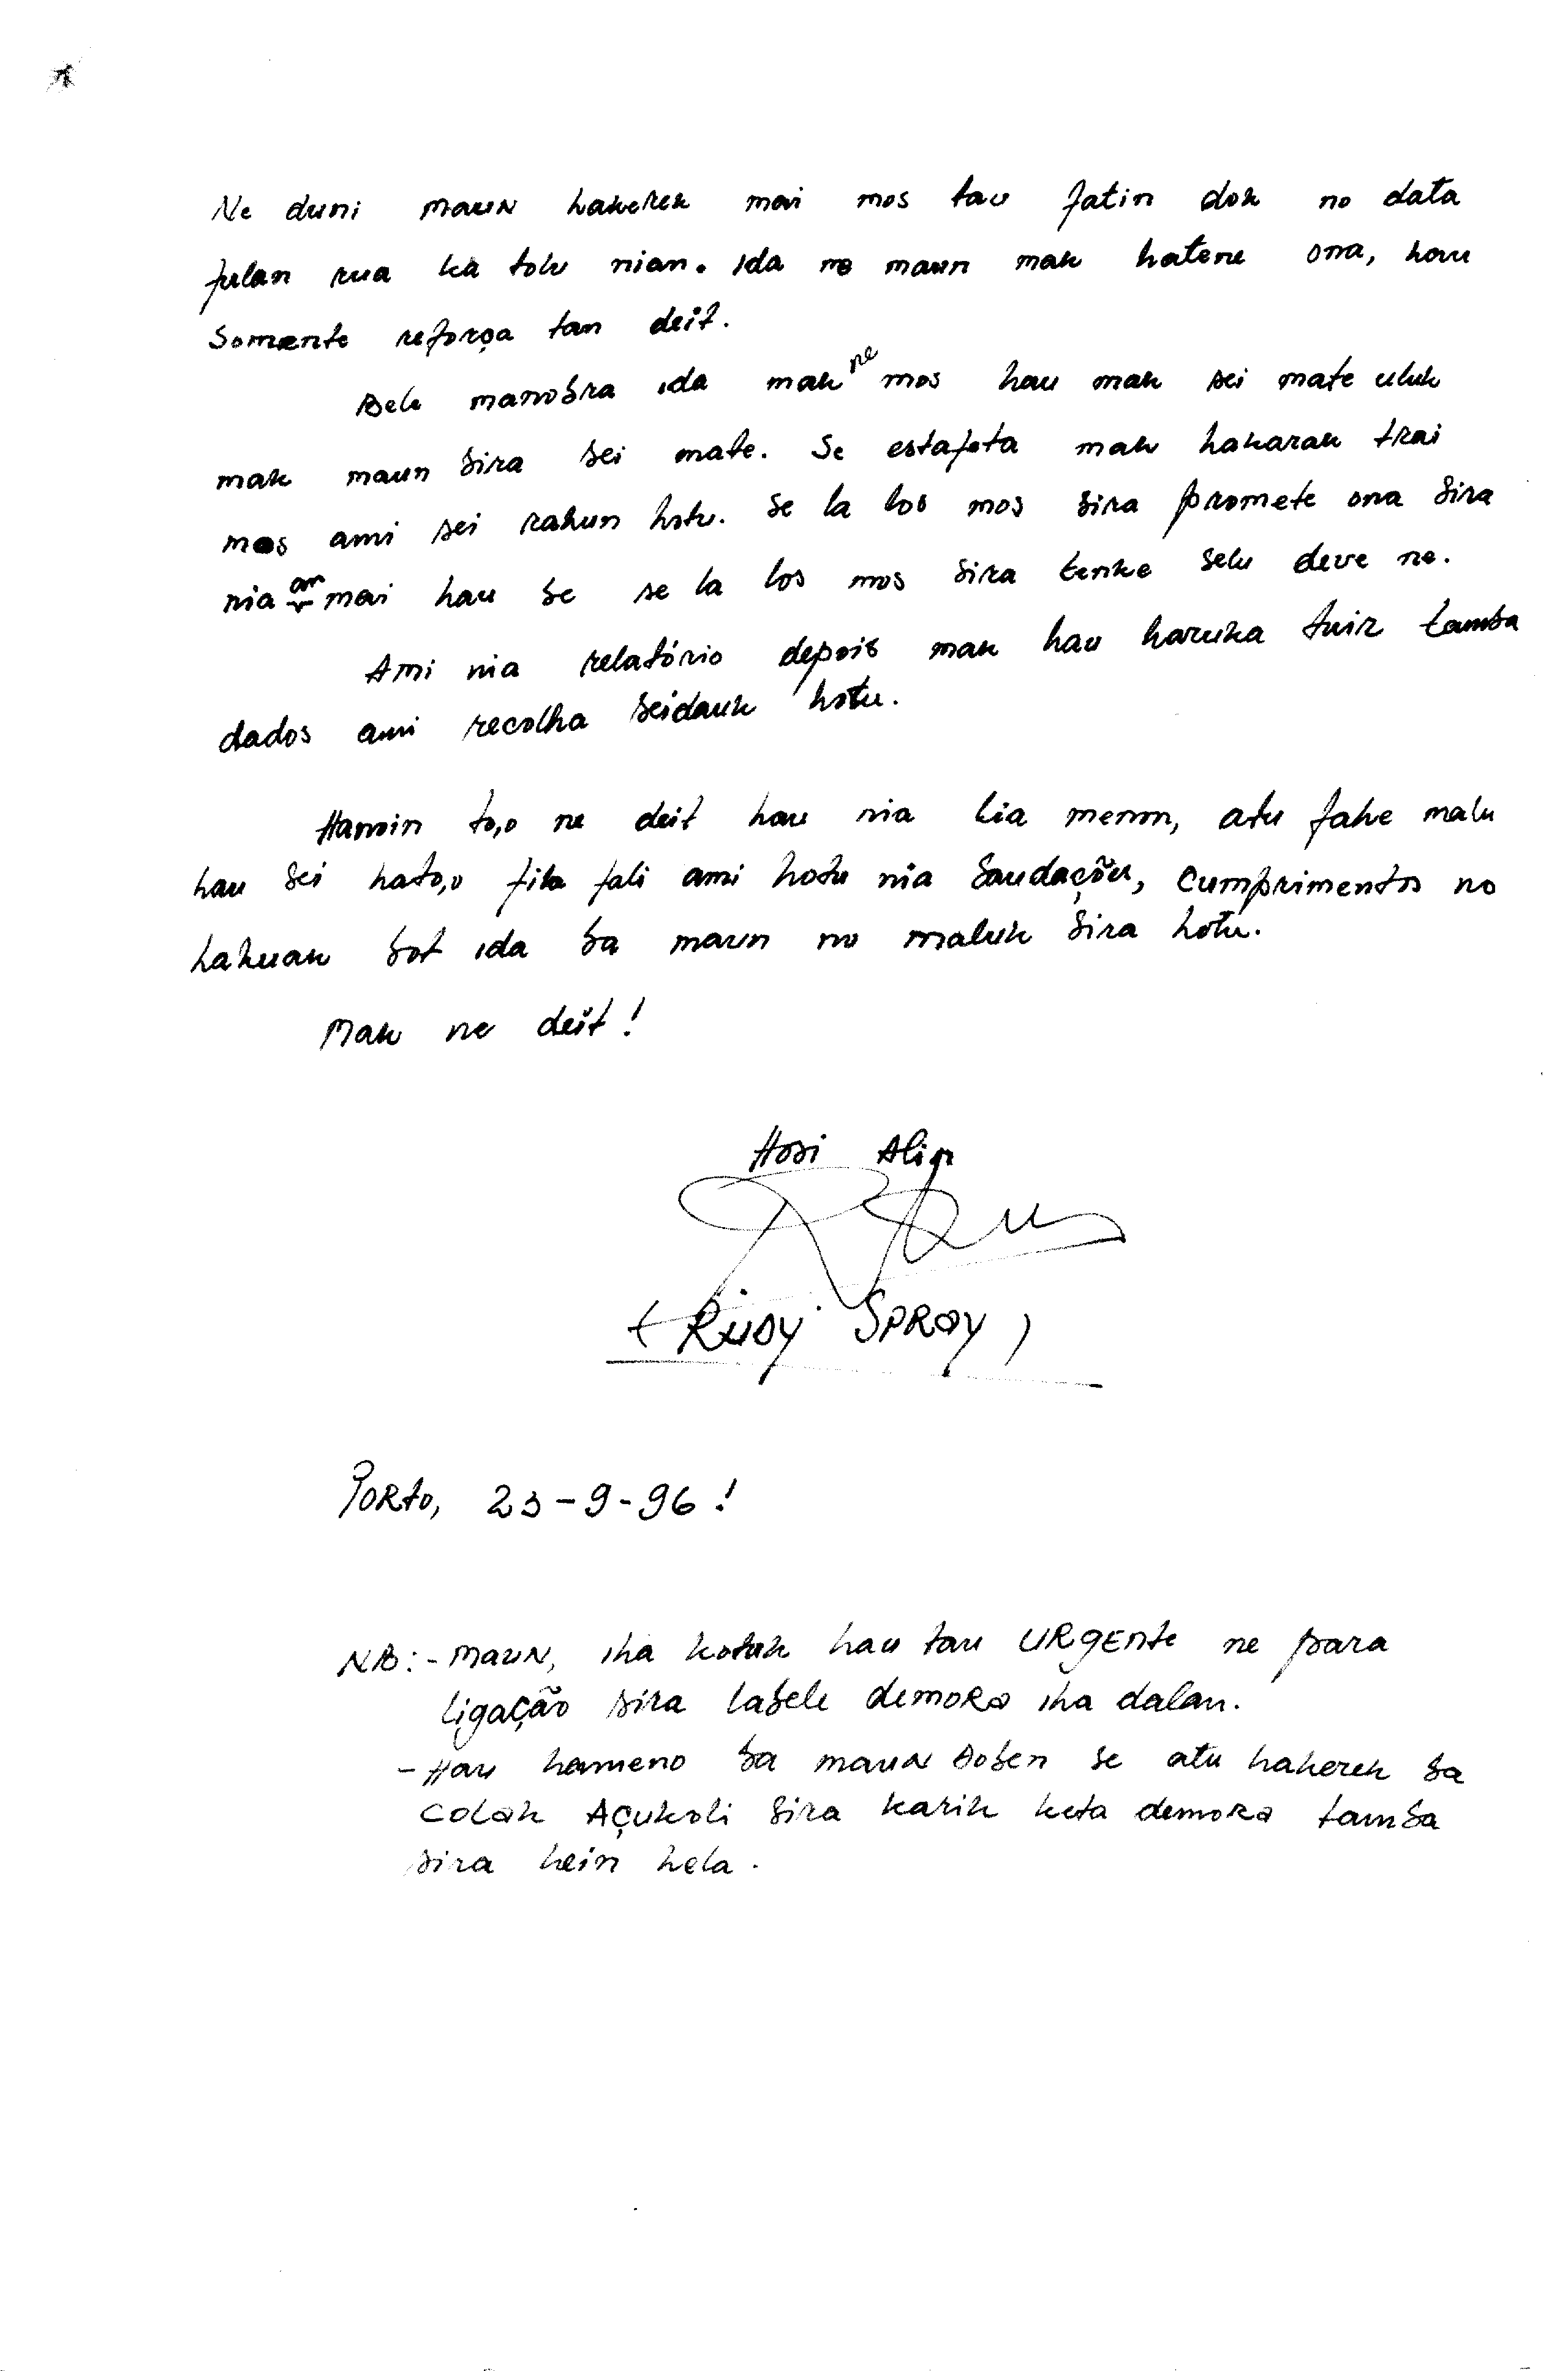 Ne duni maun hakerek mai mos tau fatin dok no data
fulan rua ka tolu nian. Ida ne maun mak hatene ona, hau
Somente reforça tan deit.
Bele manobra ida mak ne mos hau mak sei mate uluk
mak maun sira sei mate. Se estafeta mak hakarak trai
mos ami sei rahun hotu. Se la los mos sira promete ona sira
nia an mai hau be se la los mos sira tenke selu deve ne.
Ami nia relatório depois mak hau haruka tuir tamba
dados ami recolha seidauk hotu.
Hamoin to,o ne deit hau nia lia menon, atu fahe malu
hau sei hato,o fila fali ami hotu nia Saudações, Cumprimentos no
hakuak bot ida ba maun no maluk sira hotu.
Mak ne deit!
Hosi Alin
(RUDY SPRAY)
Porto, 23-9-96!
NB:- MAUN, iha kotuk hau tau URGENTE ne para
ligação sira labele demora iha dalan.
- Hau hameno ba maun Doben se atu hakerek ba
COLAK Açukoli sira karik keta demora tamba
sira hein hela.